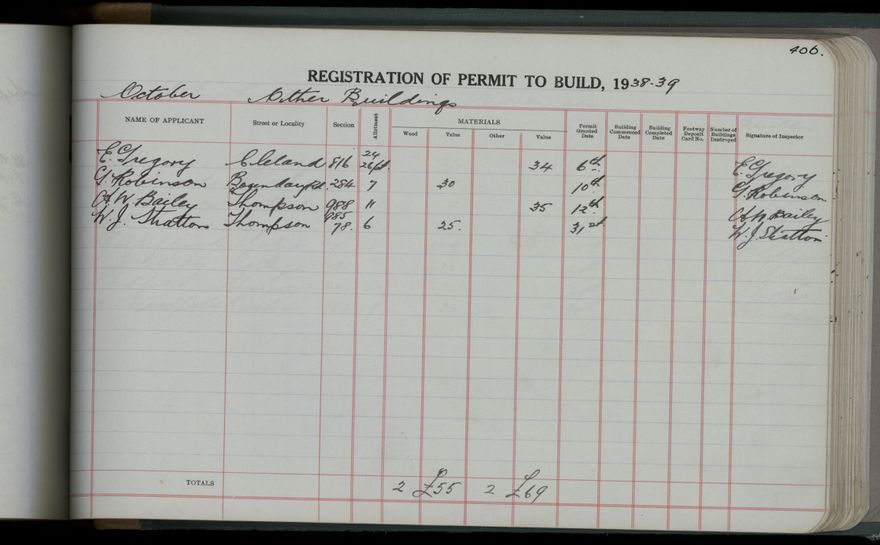 406.
REGISTRATION OF PERMIT TO BUILD, 1938-39
October Other Buildings
NAME OF APPLICANT Street or Locality Section Allotment MATERIALS Wood Value Other Value Permit Granted Date Building Commenced Date Building Completed Date Footway Deposit Card No. Number of Buildings Destroyed Signature of Inspector
24
E. Gregory Cleland 816 26/pt. 34 6th E. Gregory
G. Robinson Boundary Rd. 284 7 30 10th G. Robinson
A W. Bailey Thompson 988 11 35 12th A W Bailey
985
W. J. Stratton Thompson 78. 6 25. 31st W. J. Stratton
TOTALS 2 £55 2 £69